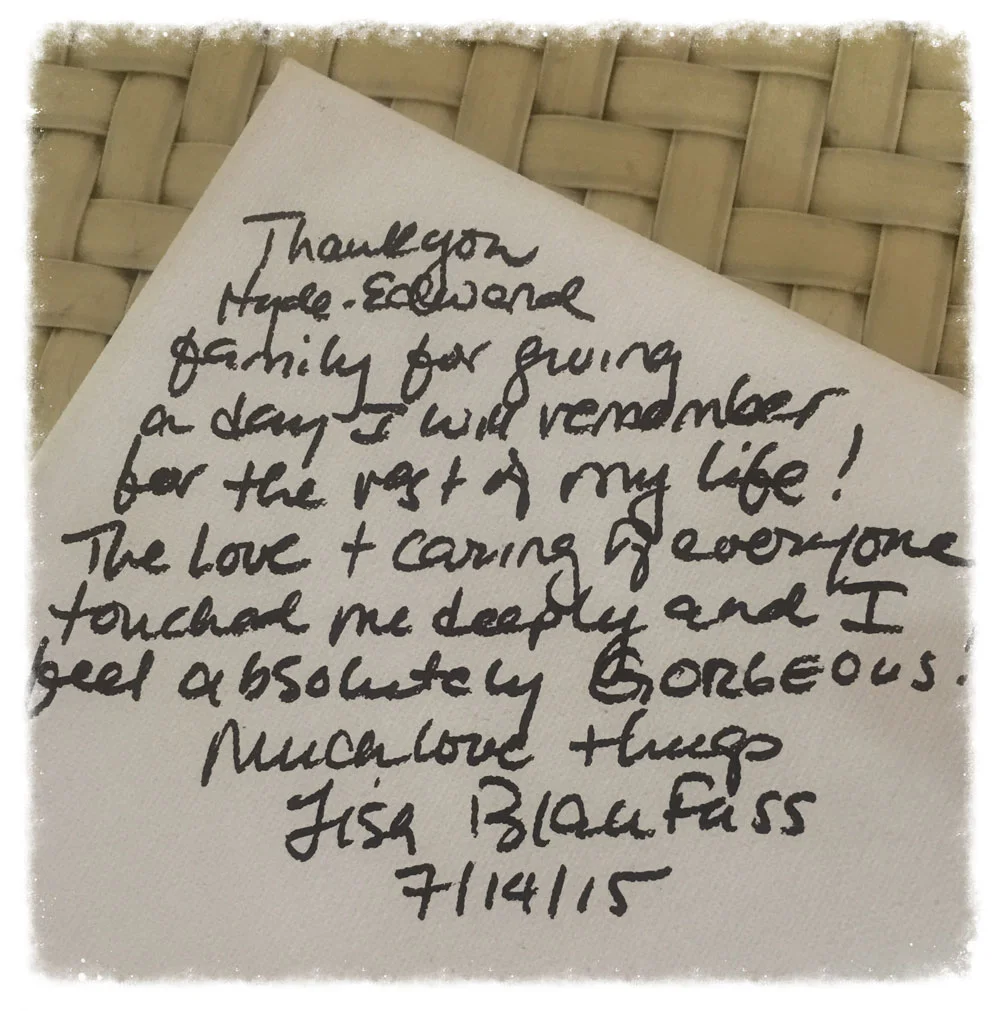 Thank you
Hyde-Edward
family for giving
a day I will remember
for the rest of my life!
The love + caring of everyone
touched me deeply and I
feel absolutely GORGEOUS!
Much love + hugs
Lisa Blaufass
7/14/15